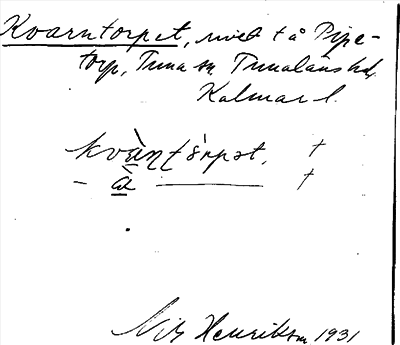 Kvarntorpet, rivet t å Pipe-
torp, Tuna sn. Tunaläns hd,
Kalmar l.
kvàɳʈórpət, †
– à ———— †
Nils Henrikson 1931